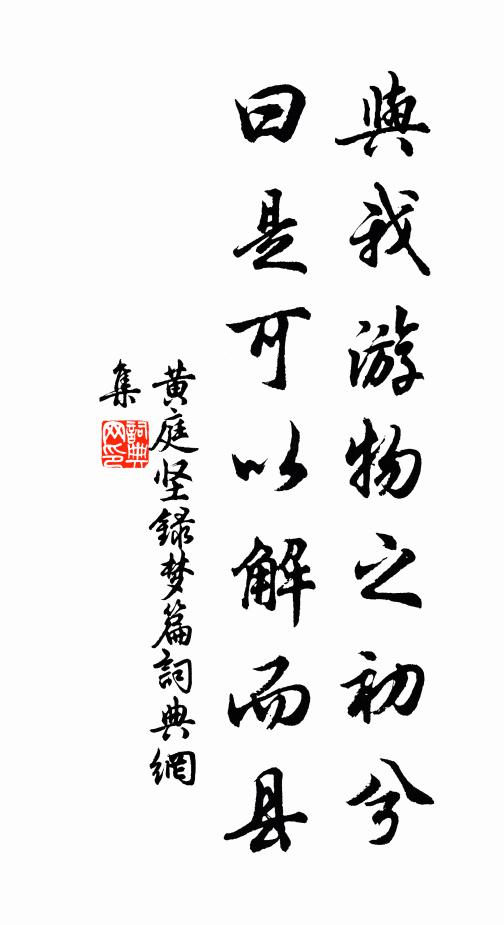 與我游物之初兮
曰是可以解而县
黄庭坚録梦篇詞典網
集
詞典网印